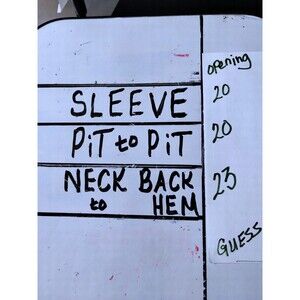 opening
SLEEVE 20
PiT to PiT 20
NECK BACK 23
to HEM
GUESS